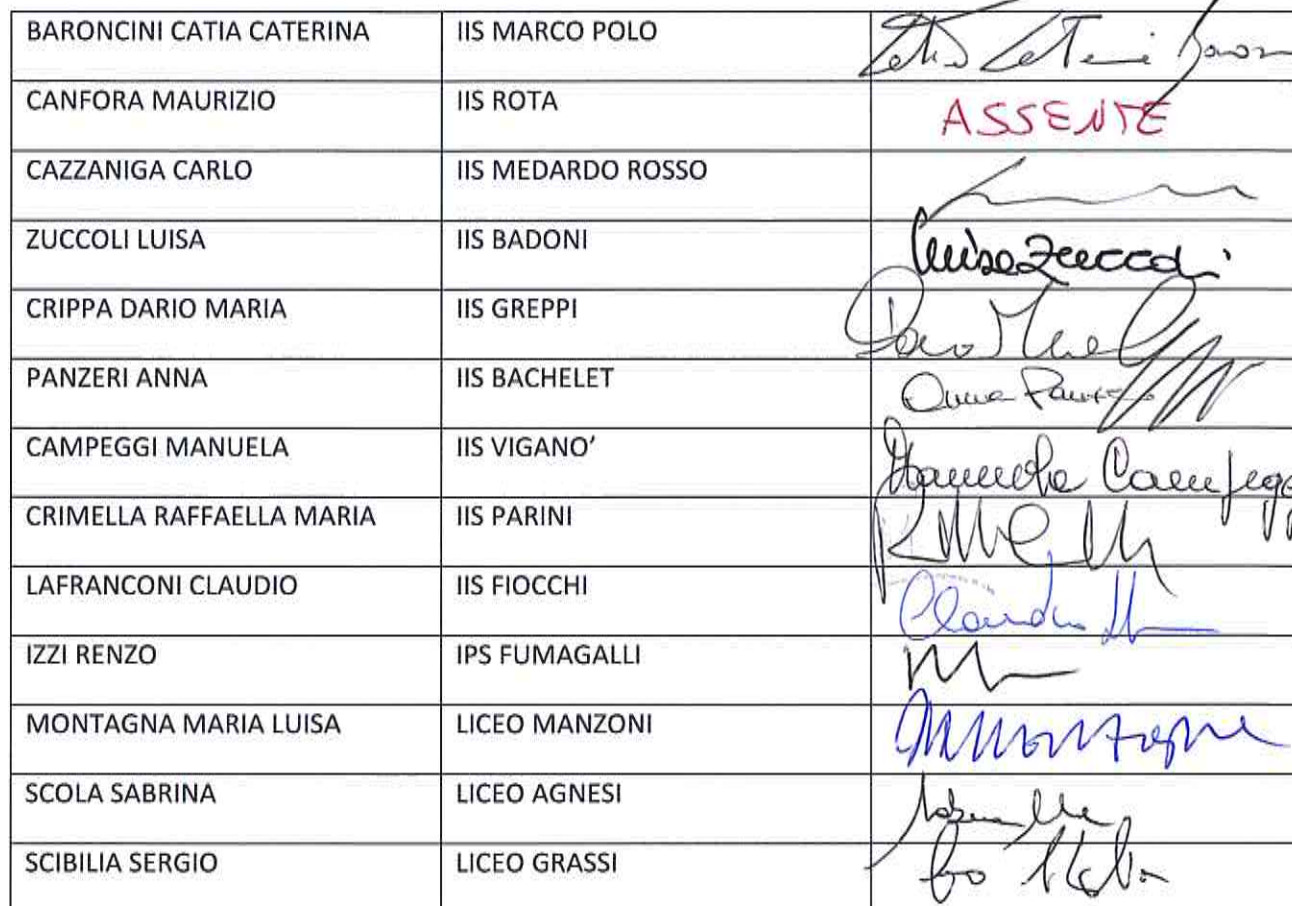 BARONCINI CATIA CATERINA IIS MARCO POLO
CANFORA MAURIZIO IIS ROTA ASSENTE
CAZZANIGA CARLO IIS MEDARDO ROSSO
ZUCCOLI LUISA IIS BADONI Luisa Zuccoli
CRIPPA DARIO MARIA IIS GREPPI
PANZERI ANNA IIS BACHELET Anna Panzeri
CAMPEGGI MANUELA IIS VIGANO’ Manuela Campegg
CRIMELLA RAFFAELLA MARIA IIS PARINI
LAFRANCONI CLAUDIO IIS FIOCCHI Claudio
IZZI RENZO IPS FUMAGALLI
MONTAGNA MARIA LUISA LICEO MANZONI MMontagna
SCOLA SABRINA LICEO AGNESI
SCIBILIA SERGIO LICEO GRASSI